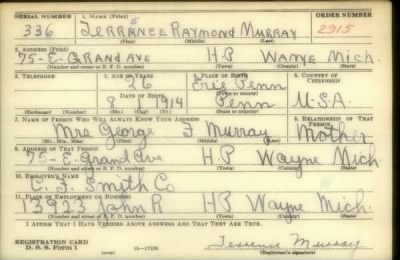 SERIAL NUMBER 1. NAME (Print) ORDER NUMBER
336 TERRANCE RAYMOND MURRAY 2915
(First) (Middle) (Last)
2. ADDRESS (Print)
75-E-GRAND AVE HP WAYNE MICH.
(Number and street or R. F. D. number) (Town) (County) (State)
3. TELEPHONE 4. AGE IN YEARS 5. PLACE OF BIRTH 6. COUNTRY OF CITIZENSHIP
26 Erie Penn
DATE OF BIRTH
8 1914 Penn U.S.A.
(Exchange) (Number) (Mo.) (Day) (Yr.) (State or country)
7. NAME OF PERSON WHO WILL ALWAYS KNOW YOUR ADDRESS 8. RELATIONSHIP OF THAT PERSON
Mrs George F Murray Mother
(Mr., Mrs., Miss) (First) (Middle) (Last)
9. ADDRESS OF THAT PERSON
75-E-Grand Ave HP Wayne Mich
(Number and street or R. F. D. number) (Town) (County) (State)
10. EMPLOYER'S NAME
C. F. Smith Co
11. PLACE OF EMPLOYMENT OR BUSINESS
13923 John R HP Wayne Mich.
(Number and street or R. F. D. number) (Town) (County) (State)
I AFFIRM THAT I HAVE VERIFIED ABOVE ANSWERS AND THAT THEY ARE TRUE.
REGISTRATION CARD
D. S. S. Form 1 16-17105 Terrence Murray
(over) (Registrant's signature)